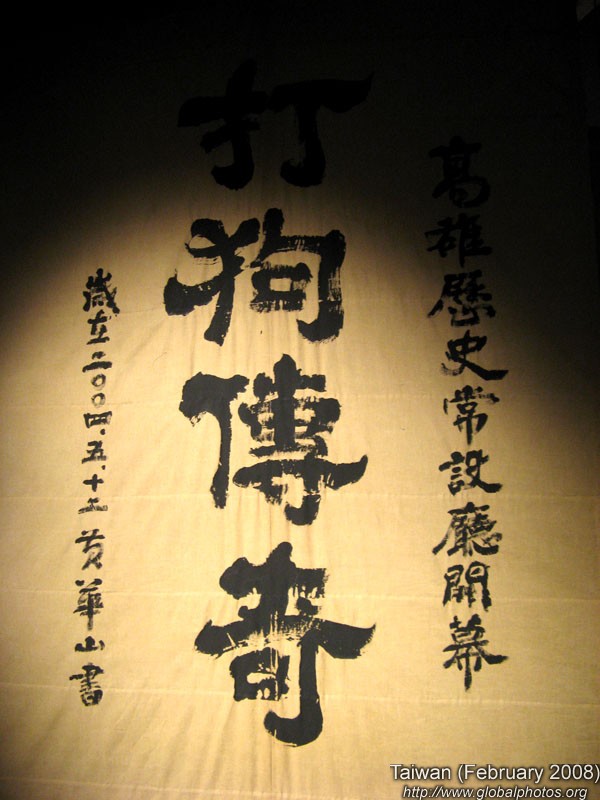 高雄歷史常設廳開幕
打狗傳奇
歲在二〇〇四.五.十二 黃華山書
Taiwan (February 2008)
http://www.globalphotos.org